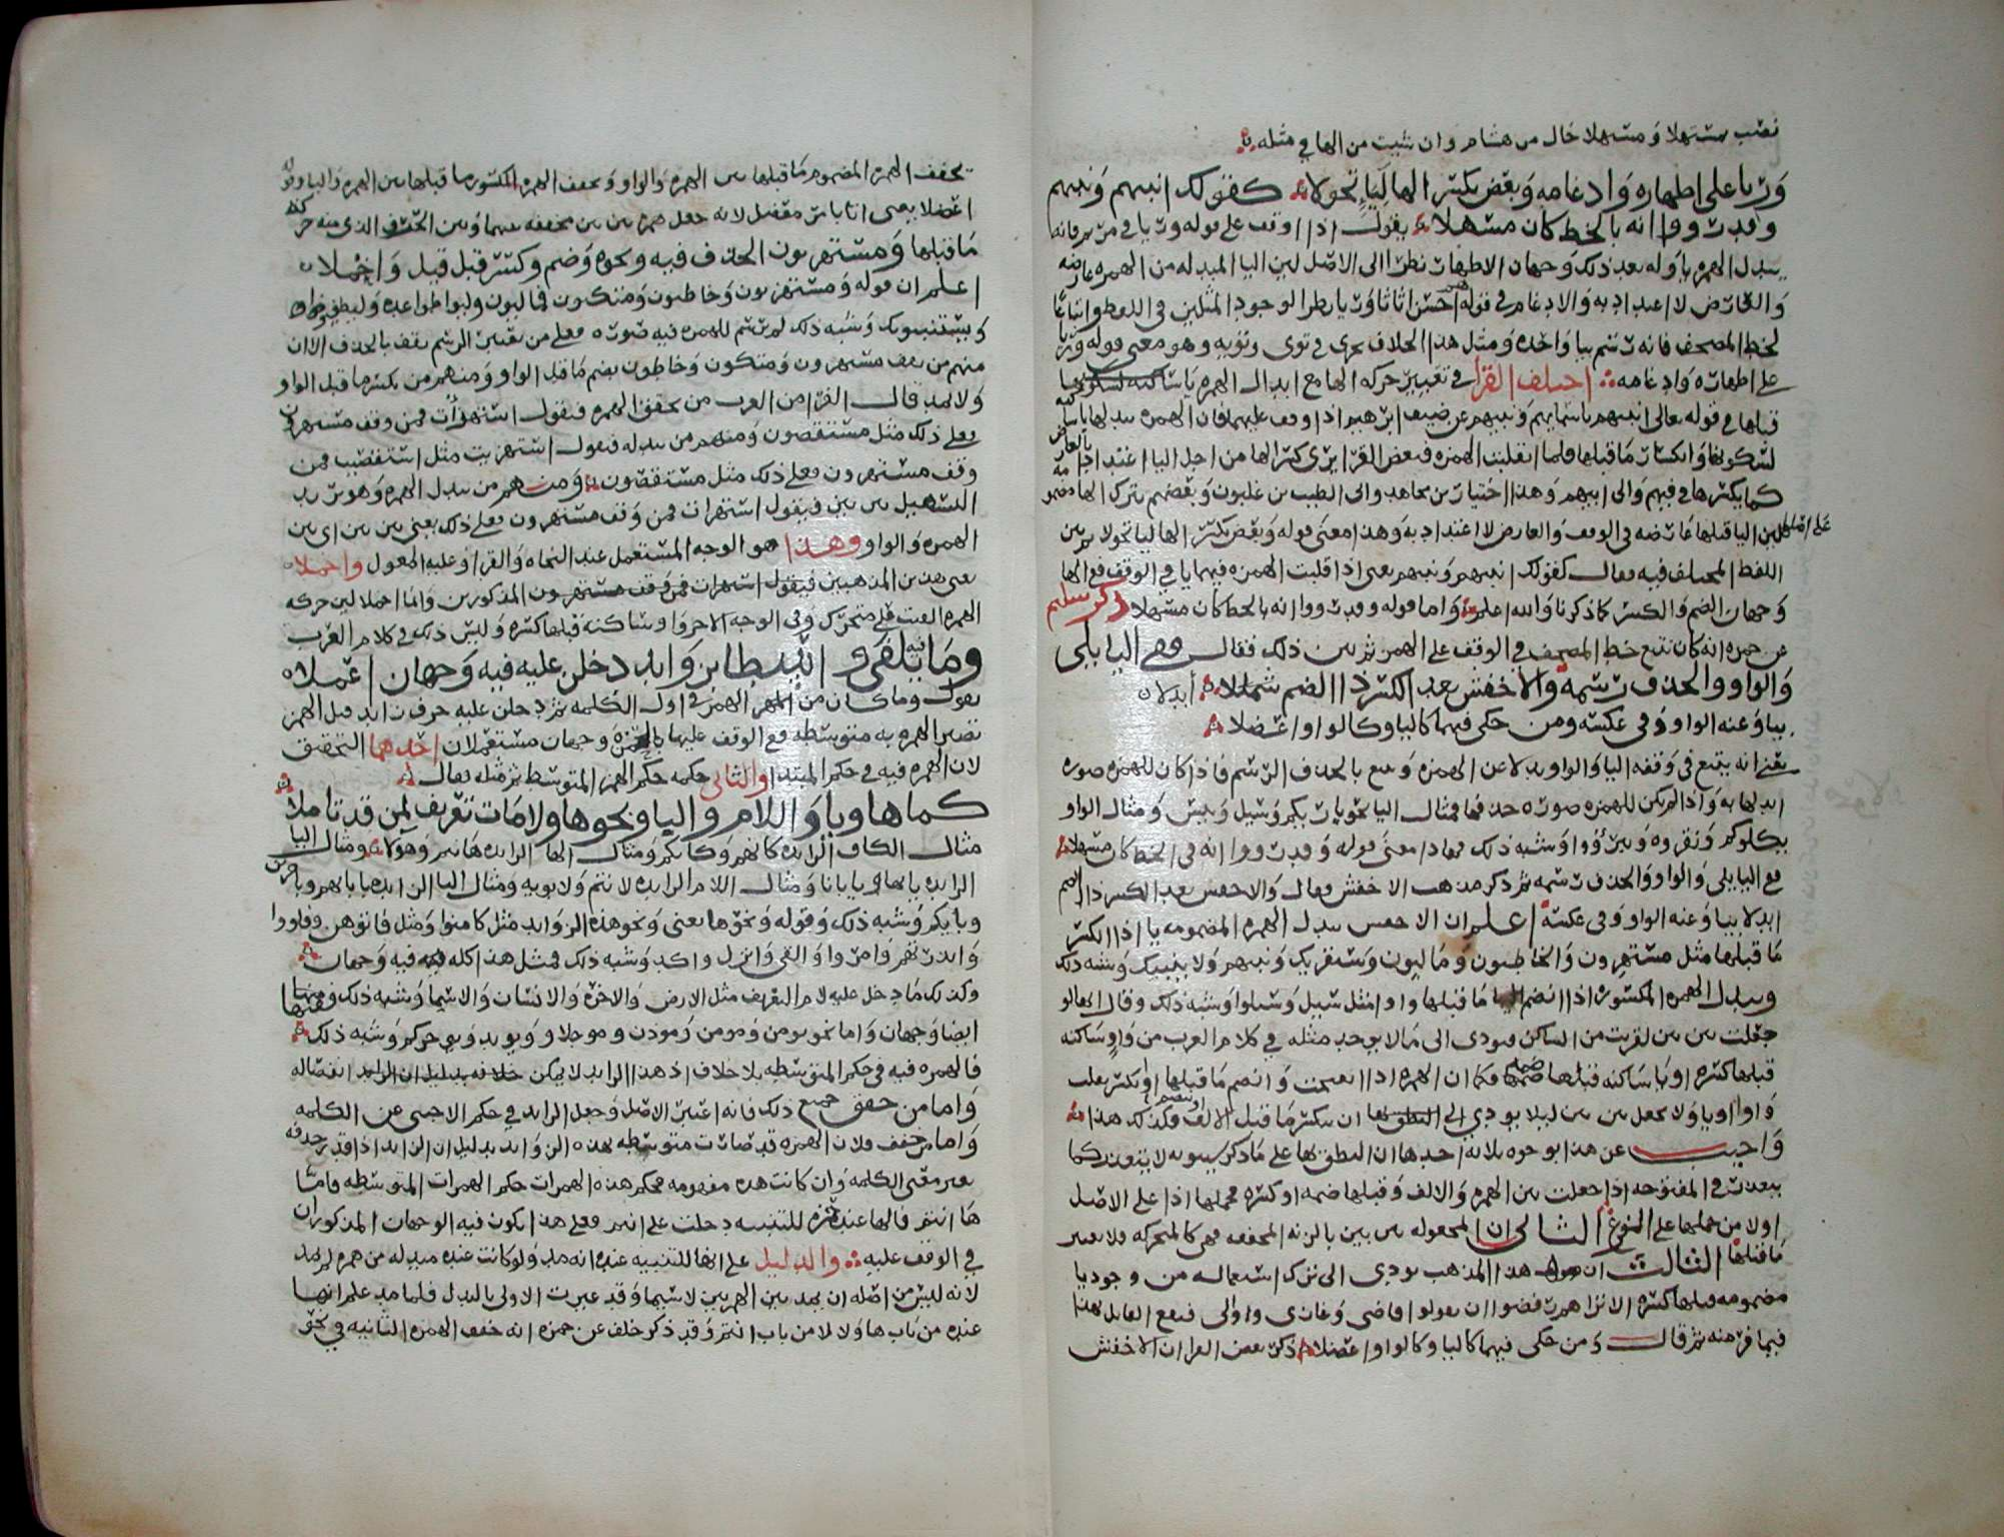 نصب مسهلا ومسهلا حال من هشام وان شيت من الها في مثله
وريا على اظهاره وادغامه وبعض بكسر الها ليا تحولا كقولك انبيهم ونبيهم
وقد رووا انه بالخط كان مسهلا يقول اذا وقف على قوله وريا في مريم فانه
يبدل الهمزه يا وله بعد ذلك وجهان الاظهار نظرا الى الاصل لان اليا المبدله من الهمزه عارضه
والعارض لا اعتداد به والادغام في قوله احسن اثاثا وريا نظرا لوجود المثلين في اللفظ واتباعا
لخط المصحف فانه رسم بيا واحده ومثل هذا الخلاف يجري في تووى وتؤيه وهو معنى قوله وريا
على اظهاره وادغامه اختلف القرا في تغيير حركه الها مع ابدال الهمزه يا ساكنه لكسر ما
قبلها في قوله تعالى انبيهم باسمايهم ونبيهم عن ضيف ابرهيم اذا وقف عليهما فان الهمزه تبدلها يا ساكنه
لسكونها وانكسار ما قبلها فلما انقلبت الهمزه فبعض القرا يرى كسر الها من اجل اليا اعتدادا بالعارض
كما يكسرها في فيهم والى ابيهم وهذا اختيار بن مجاهد وابى الطيب بن غلبون وبعضهم يترك الها مضمومه
على اصلها لان اليا قبلها عارضه في الوقف والعارض لا اعتداد به وهذا معنى قوله وبعض بكسر الها ليا تحولا ثم بين
اللفظ المختلف فيه فقال كقولك انبيهم ونبيهم يعنى اذا قلبت الهمزه فيهما يا في الوقف ففي الها
وجهان الضم والكسر كما ذكرنا والله اعلم واما قوله وقد رووا انه بالخط كان مسهلا ذكر سليم
عن حمزه انه كان يتبع خط المصحف في الوقف على الهمز ثم بين ذلك فقال ففي اليا يلي
والواو والحذف رسمه والاخفش بعد الكسر ذا الضم ابدلا
بيا وعنه الواو في عكسه ومن حكى فيهما كاليا وكالواو اعضلا
يعني انه يتبع في وقفه اليا والواو بدلا عن الهمزه ويتبع بالحذف الرسم فاذا كان للهمزه صوره
ابدلها به واذا لم يكن للهمزه صوره حذفها فمثال اليا نحو باريكم وسيل وبيس ومثال الواو
يكلوكم ونقروه ويبنؤم وشبه ذلك فهذا معنى قوله وقد رووا انه في الخط كان مسهلا
ففي اليا يلي والواو والحذف رسمه ثم ذكر مذهب الاخفش فقال والاخفش بعد الكسر ذا الضم
ابدلا بيا وعنه الواو وفي عكسه اعلم ان الاخفش يبدل الهمزه المضمومه يا اذا انكسر
ما قبلها مثل مستهزون والخاطيون وماليون وسنقريك ونبيهم ولا ينبيك وشبه ذلك
ويبدل الهمزه المكسوره اذا انضم ما قبلها واوا مثل سيل وسيلوا وشبه ذلك وقال انها لو
جعلت بين بين لقربت من الساكن فيودي الى ما لا يوجد مثله في كلام العرب من واو ساكنه
قبلها كسره او يا ساكنه قبلها ضمه فكما ان الهمزه اذا انفتحت وانضم ما قبلها او انكسر تقلب
واوا او يا ولا تجعل بين بين ليلا يودي الى النطق بها ان يكسر ما قبل الالف فكذلك هذا
واجيب عن هذا بوجوه ثلاثه احدها ان النطق بها على ما ذكر سيبويه لا يتعذر كما
يتعذر في المفتوحه اذا جعلت بين الهمزه والالف وقبلها ضمه او كسره فحملها اذا على الاصل
اولا من حملها على الفرع الثاني ان المجعوله بين بين بالزنه المخففه فهي كالمتحركه فلا يعتبر
ما قبلها الثالث ان هذا المذهب يودي الى ترك استعماله من وجود يا
مضمومه قبلها كسره الا تراهم رفضوا ان يقولوا قاضي وغازي والى فيقع القايل بهذا
فيما فر منه ثم قال ومن حكى فيهما كاليا وكالواو اعضلا ذكر بعض القرا ان الاخفش
تخفف الهمزه المضموم ما قبلها بين الهمزه والواو وتخفف الهمزه المكسور ما قبلها بين الهمزه واليا وقوله
اعضلا يعنى اتا بامر معضل لانه جعل همزه بين بين مخففه بينها وبين الحرف الذي منه حركه
ما قبلها ومستهزون الحذف فيه ونحوه وضم وكسر قبل قيل واخملا
اعلم ان قوله ومستهزون وخاطون ومتكون فماليون وليواطوا عده وليطفوا
ويستنبونك وشبه ذلك لم يرسم للهمزه فيه صوره فعلى من يعتبر الرسم يقف بالحذف الا ان
منهم من يقف مستهزون ومتكون وخاطون بضم ما قبل الواو ومنهم من يكسر ما قبل الواو
ولا يمد قال الفرا من العرب من يحقق الهمزه فيقول استهزات فمن وقف مستهزون
فعلى ذلك مثل مستقصون ومنهم من يبدله فيقول استهزيت مثل استقصيت فمن
وقف مستهزون فعلى ذلك مثل مستقصون ومنهم من يبدل الهمزه وهو يريد
التسهيل بين بين فيقول استهزات فمن وقف مستهزون فعلى ذلك يعني بين بين اي بين
الهمزه والواو وهذا هو الوجه المستعمل عند النحاه والقرا وعليه المعول واخملا
يعنى هذين المذهبين فيقول استهزات فمن وقف مستهزون المذكورين وانما اخملا لان حركه
الهمزه القيت على متحرك وفي الوجه الاخر واو ساكنه قبلها كسره وليس ذلك في كلام العرب
وما فيه يلفى واسطا بزوايد دخلن عليه فيه وجهان اعملا
يقول وما كان من الهمز في اول الكلمه ثم دخل عليه حرف زايد قبل الهمز
تصير الهمزه به متوسطه ففي الوقف عليها بالهمزه وجهان مستعملان احدهما التحقيق
لان الهمزه فيه في حكم المبتدا والثاني حكمه حكم الهمز المتوسط ثم مثله فقال
كما ها ويا واللام واليا ونحوها ولامات تعريف لمن قد تاملا
مثال الكاف الزايده كانهم وكاين ومثال الها الزايده هانتم وهولا ومثال اليا
الزايده يايها ويا يانا ومثال اللام الزايده لانتم ولابويه ومثال البا الزايده بابايهم وباخرين
وبايكم وشبه ذلك وقوله ونحوها يعنى ونحو هذه الزوايد مثل كامنوا ومثل فاتوهن وفاووا
واانذرتهم وامروا والقي وانزل واكد وشبه ذلك فمثل هذا كله فيه وجهان
وكذلك ما دخل عليه لام التعريف مثل الارض والاخره والانسان والاسما وشبه ذلك ففيها
ايضا وجهان واما نحو يومن ومومن ومودن وموجلا ويويد ويوخركم وشبه ذلك
فالهمزه فيه في حكم المتوسطه بلا خلاف اذ هذا الزايد لا يمكن حذفه بدليل ان الزايد انفصاله
واما من حقق جميع ذلك فانه اعتبر الاصل وجعل الزايد في حكم الاجنبي عن الكلمه
واما من خفف فلان الهمزه قد صارت متوسطه بهذه الزوايد بدليل ان الزايد اذا قدر حذفه
تغير معنى الكلمه وان كانت هذه مفهومه فحكم هذه الهمزات حكم الهمزات المتوسطه فاما
ها انتم فالها عند حمزه للتنبيه دخلت على انتم فعلى هذا يكون فيه الوجهان المذكوران
في الوقف عليه والدليل على انها للتنبيه عنده انه مد ولو كانت عنده مبدله من همزه لم يمد
لانه ليس من اصله ان يمد بين الهمزتين لا سيما وقد غيرت الاولى بالبدل فلما مد علم انها
عنده من باب ها ولا لا من باب اانتم وقد ذكر خلف عن حمزه انه خفف الهمزه الثانيه في نحو